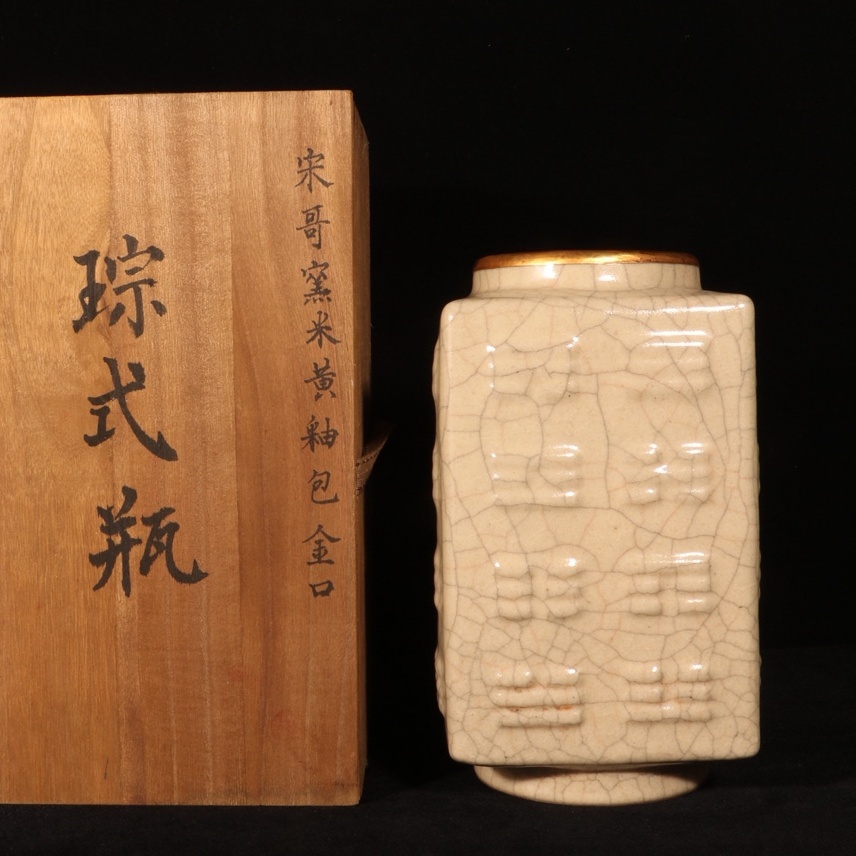 宋哥窯米黃釉包金口
琮式瓶